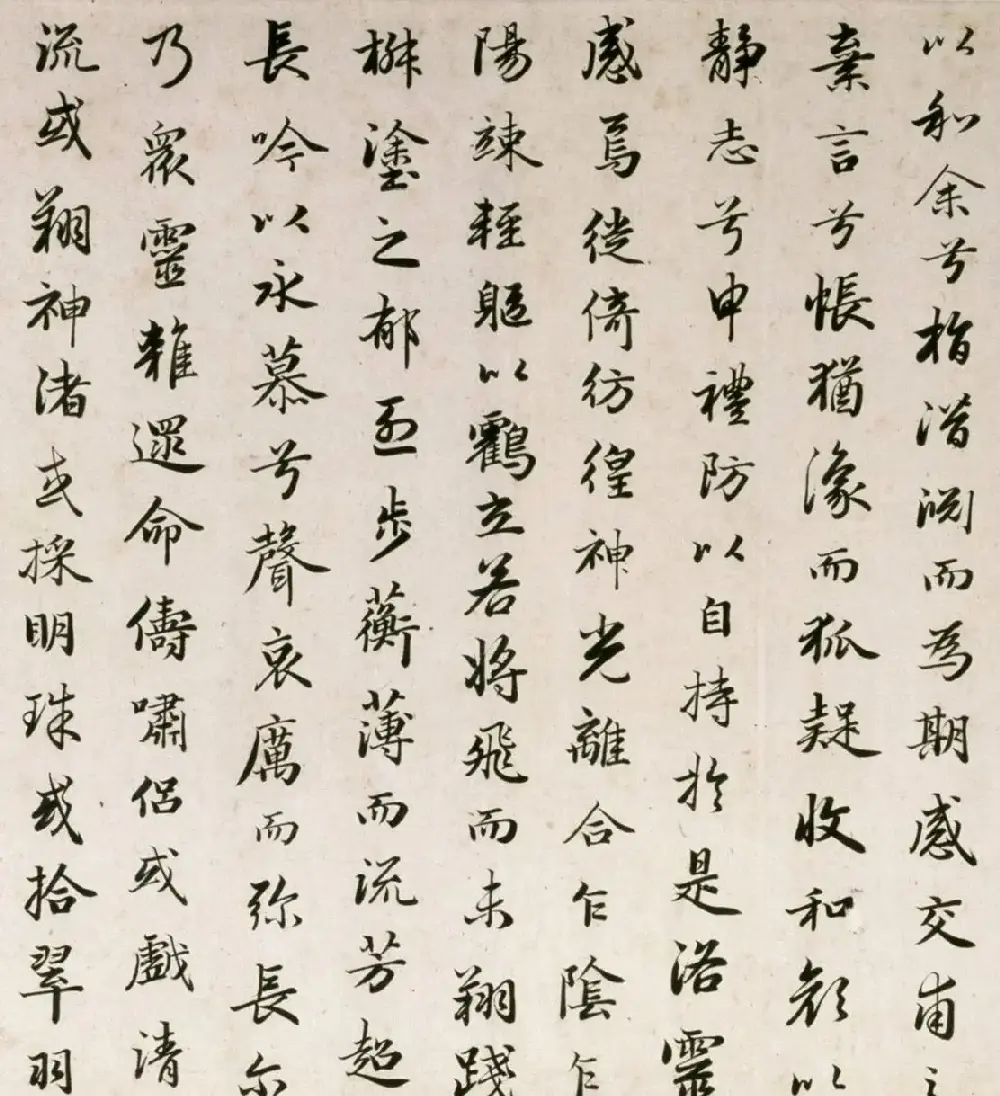 以和余兮指潛淵而為期感交甫之
棄言兮悵猶豫而狐疑收和顔以
靜志兮申禮防以自持於是洛靈
感焉徙倚彷徨神光離合乍陰乍
陽竦輕軀以鶴立若將飛而未翔踐
椒塗之郁烈步蘅薄而流芳超
長吟以永慕兮聲哀厲而弥長尓
乃衆靈雜遝命儔嘯侶或戲清
流或翔神渚或採明珠或拾翠羽